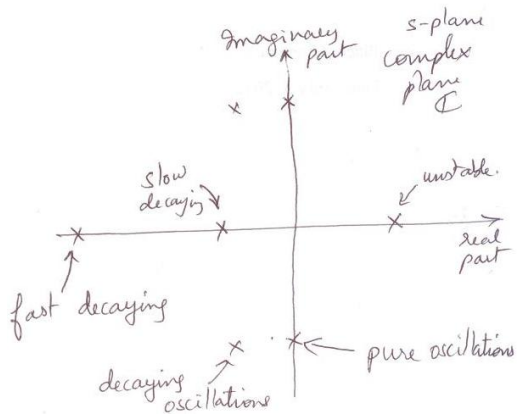 Imaginary
part
s-plane
complex
plane
ℂ
slow
decaying
unstable.
real
part
fast decaying
pure oscillations
decaying
oscillations